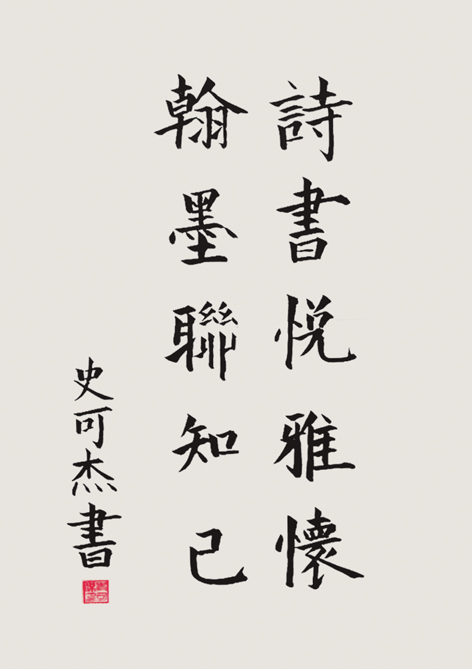 詩書悦雅懷
翰墨聯知己
史可杰書